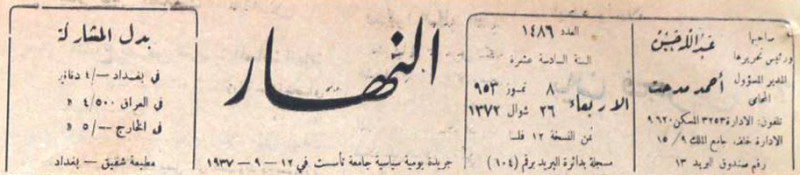 صاحبها
ورئيس تحريرها
عبدالله حسن
المدير المسؤول
المحامي
أحمد مدحت
تلفون: الادارة ٣٢٥٣ المسكن ٩٦٢٠
الادارة خلف جامع الملك ١٥/٩
رقم صندوق البريد ١٣
العدد ١٤٨٦
السنة السادسة عشرة
الاربعاء
٨ تموز ٩٥٣
٢٦ شوال ١٣٧٢
ثمن النسخة ١٢ فلسا
مسجلة بدائرة البريد برقم (١٠٤)
النهار
جريدة يومية سياسية جامعة تأسست في ١٢ - ٩ - ١٩٣٧
بدل المشاركة
في بغداد —/٤ دنانير
في العراق ٤/٥٠٠ »
في الخارج —/٥ »
مطبعة شفيق - بغداد